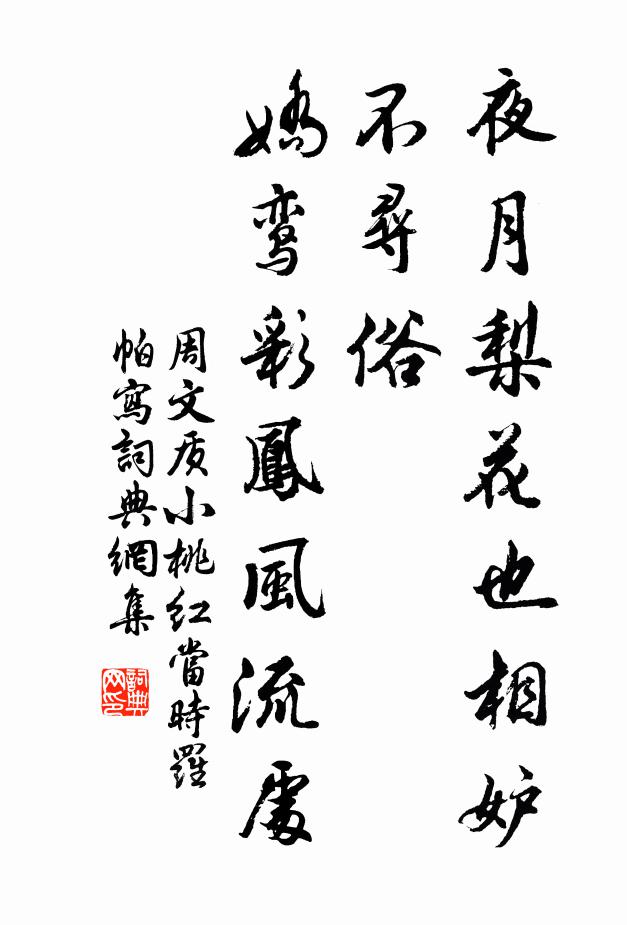 夜月梨花也相妒
不尋俗
嬌鸾彩鳳風流處
周文质小桃红當時羅
帕寫詞典網集
詞典网印